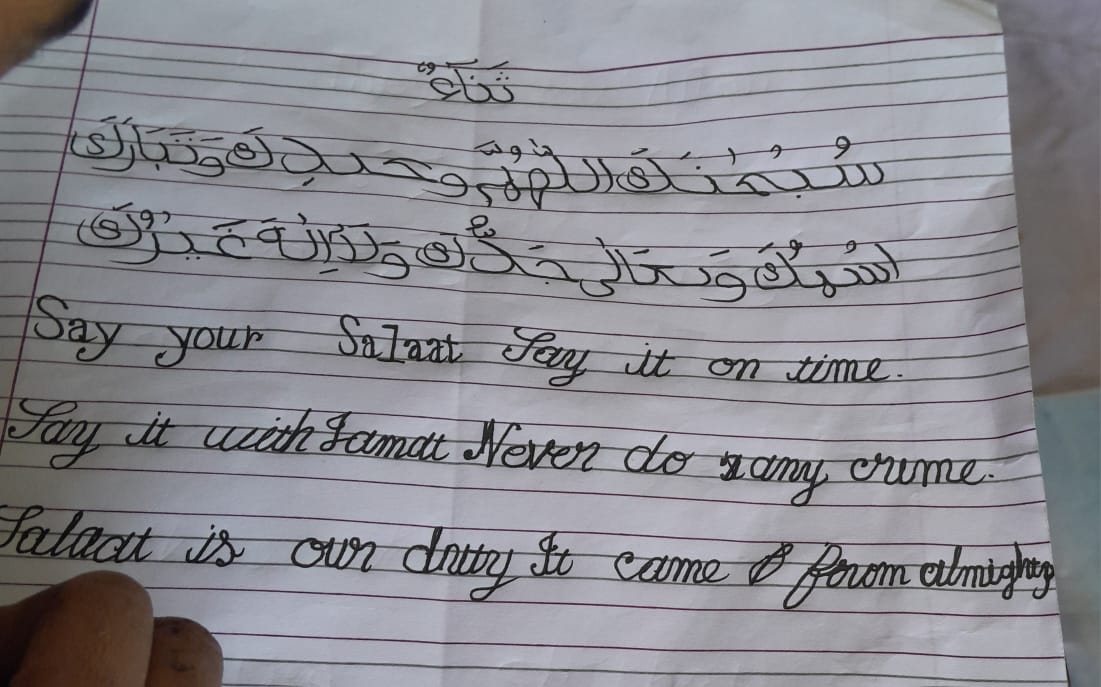 ثَنَآءٌ
سُبْحٰنَكَ اللّٰهُمَّ وَبِحَمْدِكَ وَتَبَارَكَ
اسْمُكَ وَتَعَالٰى جَدُّكَ وَلَآ اِلٰهَ غَيْرُكَ
Say your Salaat Say it on time.
Say it with Jamat Never do any crime.
Salaat is our dutuy It came from almighty